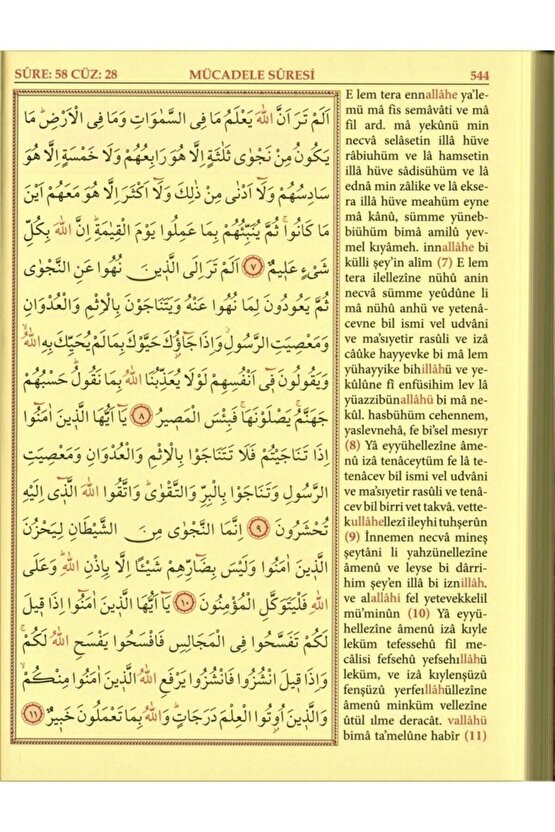 SÛRE: 58 CÜZ: 28
MÜCADELE SÛRESİ
544
اَلَمْ تَرَ اَنَّ اللّٰهَ يَعْلَمُ مَا فِي السَّمٰوَاتِ وَمَا فِي الْاَرْضِۜ مَا
يَكُونُ مِنْ نَجْوٰى ثَلٰثَةٍ اِلَّا هُوَ رَابِعُهُمْ وَلَا خَمْسَةٍ اِلَّا هُوَ
سَادِسُهُمْ وَلَٓا اَدْنٰى مِنْ ذٰلِكَ وَلَٓا اَكْثَرَ اِلَّا هُوَ مَعَهُمْ اَيْنَ
مَا كَانُواۚ ثُمَّ يُنَبِّئُهُمْ بِمَا عَمِلُوا يَوْمَ الْقِيٰمَةِۜ اِنَّ اللّٰهَ بِكُلِّ
شَيْءٍ عَلٖيمٌ ﴿٧﴾ اَلَمْ تَرَ اِلَى الَّذٖينَ نُهُوا عَنِ النَّجْوٰى
ثُمَّ يَعُودُونَ لِمَا نُهُوا عَنْهُ وَيَتَنَاجَوْنَ بِالْاِثْمِ وَالْعُدْوَانِ
وَمَعْصِيَتِ الرَّسُولِۘ وَاِذَا جَٓاؤُ۫كَ حَيَّوْكَ بِمَا لَمْ يُحَيِّكَ بِهِ اللّٰهُۙ
وَيَقُولُونَ فٖٓي اَنْفُسِهِمْ لَوْلَا يُعَذِّبُنَا اللّٰهُ بِمَا نَقُولُۜ حَسْبُهُمْ
جَهَنَّمُۚ يَصْلَوْنَهَاۚ فَبِئْسَ الْمَصٖيرُ ﴿٨﴾ يَٓا اَيُّهَا الَّذٖينَ اٰمَنُٓوا
اِذَا تَنَاجَيْتُمْ فَلَا تَتَنَاجَوْا بِالْاِثْمِ وَالْعُدْوَانِ وَمَعْصِيَتِ
الرَّسُولِ وَتَنَاجَوْا بِالْبِرِّ وَالتَّقْوٰىۜ وَاتَّقُوا اللّٰهَ الَّذٖٓي اِلَيْهِ
تُحْشَرُونَ ﴿٩﴾ اِنَّمَا النَّجْوٰى مِنَ الشَّيْطَانِ لِيَحْزُنَ
الَّذٖينَ اٰمَنُوا وَلَيْسَ بِضَٓارِّهِمْ شَيْـًٔا اِلَّا بِاِذْنِ اللّٰهِۜ وَعَلَى
اللّٰهِ فَلْيَتَوَكَّلِ الْمُؤْمِنُونَ ﴿١٠﴾ يَٓا اَيُّهَا الَّذٖينَ اٰمَنُٓوا اِذَا قٖيلَ
لَكُمْ تَفَسَّحُوا فِي الْمَجَالِسِ فَافْسَحُوا يَفْسَحِ اللّٰهُ لَكُمْۚ
وَاِذَا قٖيلَ انْشُزُوا فَانْشُزُوا يَرْفَعِ اللّٰهُ الَّذٖينَ اٰمَنُوا مِنْكُمْۙ
وَالَّذٖينَ اُو۫تُوا الْعِلْمَ دَرَجَاتٍۜ وَاللّٰهُ بِمَا تَعْمَلُونَ خَبٖيرٌ ﴿١١﴾
E lem tera ennallâhe ya'le-
mü mâ fis semâvâti ve mâ
fil ard. mâ yekûnü min
necvâ selâsetin illâ hüve
râbiuhüm ve lâ hamsetin
illâ hüve sâdisühüm ve lâ
ednâ min zâlike ve lâ ekse-
ra illâ hüve meahüm eyne
mâ kânû, sümme yüneb-
biühüm bimâ amilû yev-
mel kıyâmeh. innallâhe bi
külli şey'in alîm (7) E lem
tera ilellezîne nühû anin
necvâ sümme yeûdûne li
mâ nühû anhü ve yetenâ-
cevne bil ismi vel udvâni
ve ma'sıyetir rasûli ve izâ
câûke hayyevke bi mâ lem
yühayyike bihillâhü ve ye-
kûlûne fî enfüsihim lev lâ
yüazzibünallâhü bi mâ ne-
kûl. hasbühüm cehennem,
yaslevnehâ, fe bi'sel mesıyr
(8) Yâ eyyühellezîne âme-
nû izâ tenâceytüm fe lâ te-
tenâcev bil ismi vel udvâni
ve ma'sıyetir rasûli ve tenâ-
cev bil birri vet takvâ. vette-
kullâhellezî ileyhi tuhşerûn
(9) İnnemen necvâ mineş
şeytâni li yahzünellezîne
âmenû ve leyse bi dârri-
him şey'en illâ bi iznillâh.
ve alallâhi fel yetevekkelil
mü'minûn (10) Yâ eyyü-
hellezîne âmenû izâ kıyle
leküm tefessehû fil me-
câlisi fefsehû yefsehıllâhü
leküm, ve izâ kıylenşüzû
fenşüzû yerfeıllâhüllezîne
âmenû minküm vellezîne
ûtül ılme deracât. vallâhü
bimâ ta'melûne habîr (11)